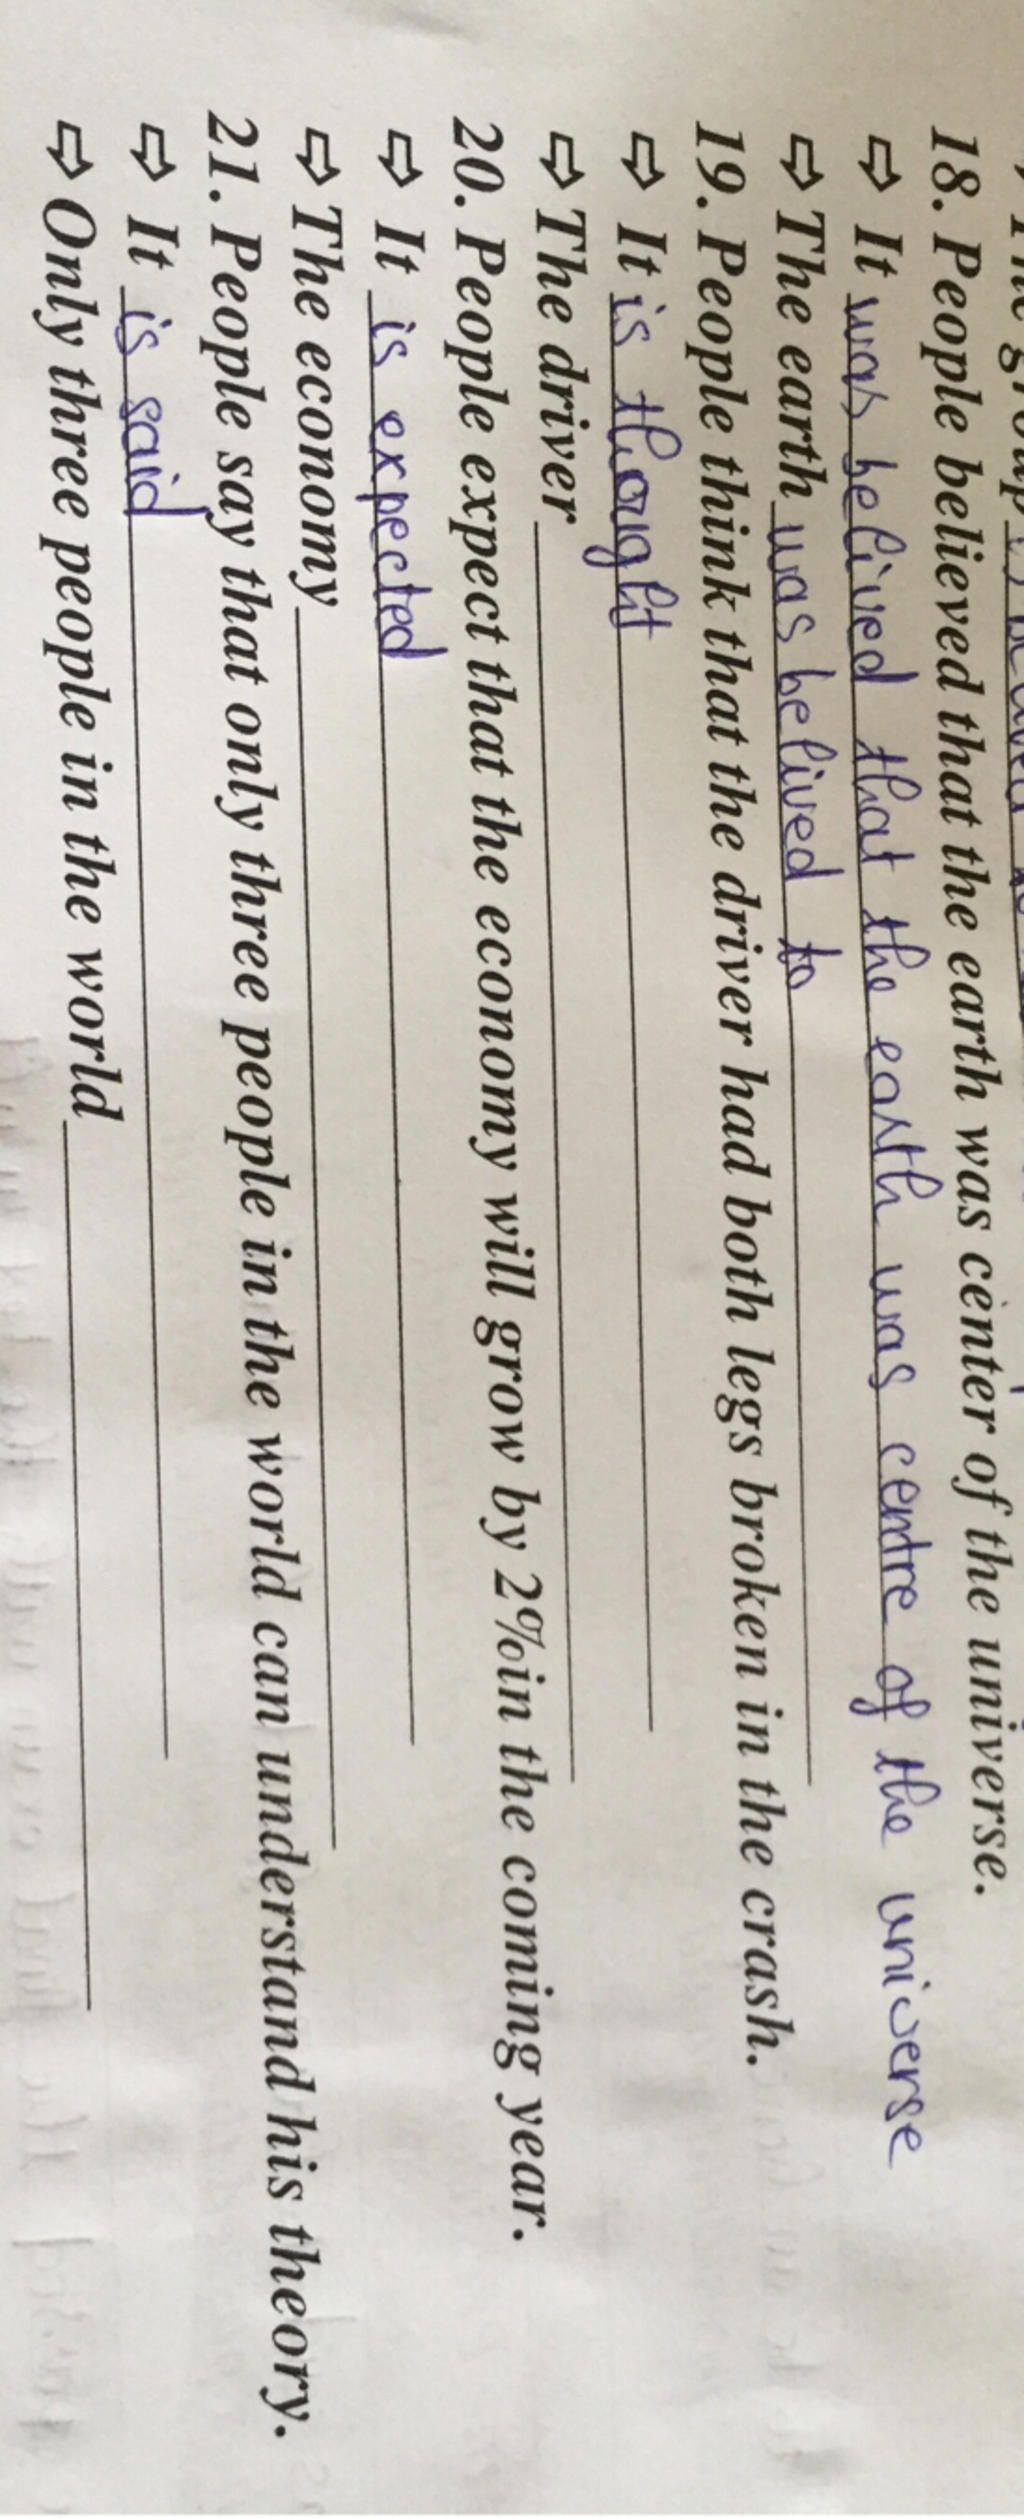 18. People believed that the earth was center of the universe.
⇨ It was belived that the earth was centre of the universe
⇨ The earth was belived to
19. People think that the driver had both legs broken in the crash.
⇨ It is thought
⇨ The driver
20. People expect that the economy will grow by 2%in the coming year.
⇨ It is expected
⇨ The economy
21. People say that only three people in the world can understand his theory.
⇨ It is said
⇨ Only three people in the world